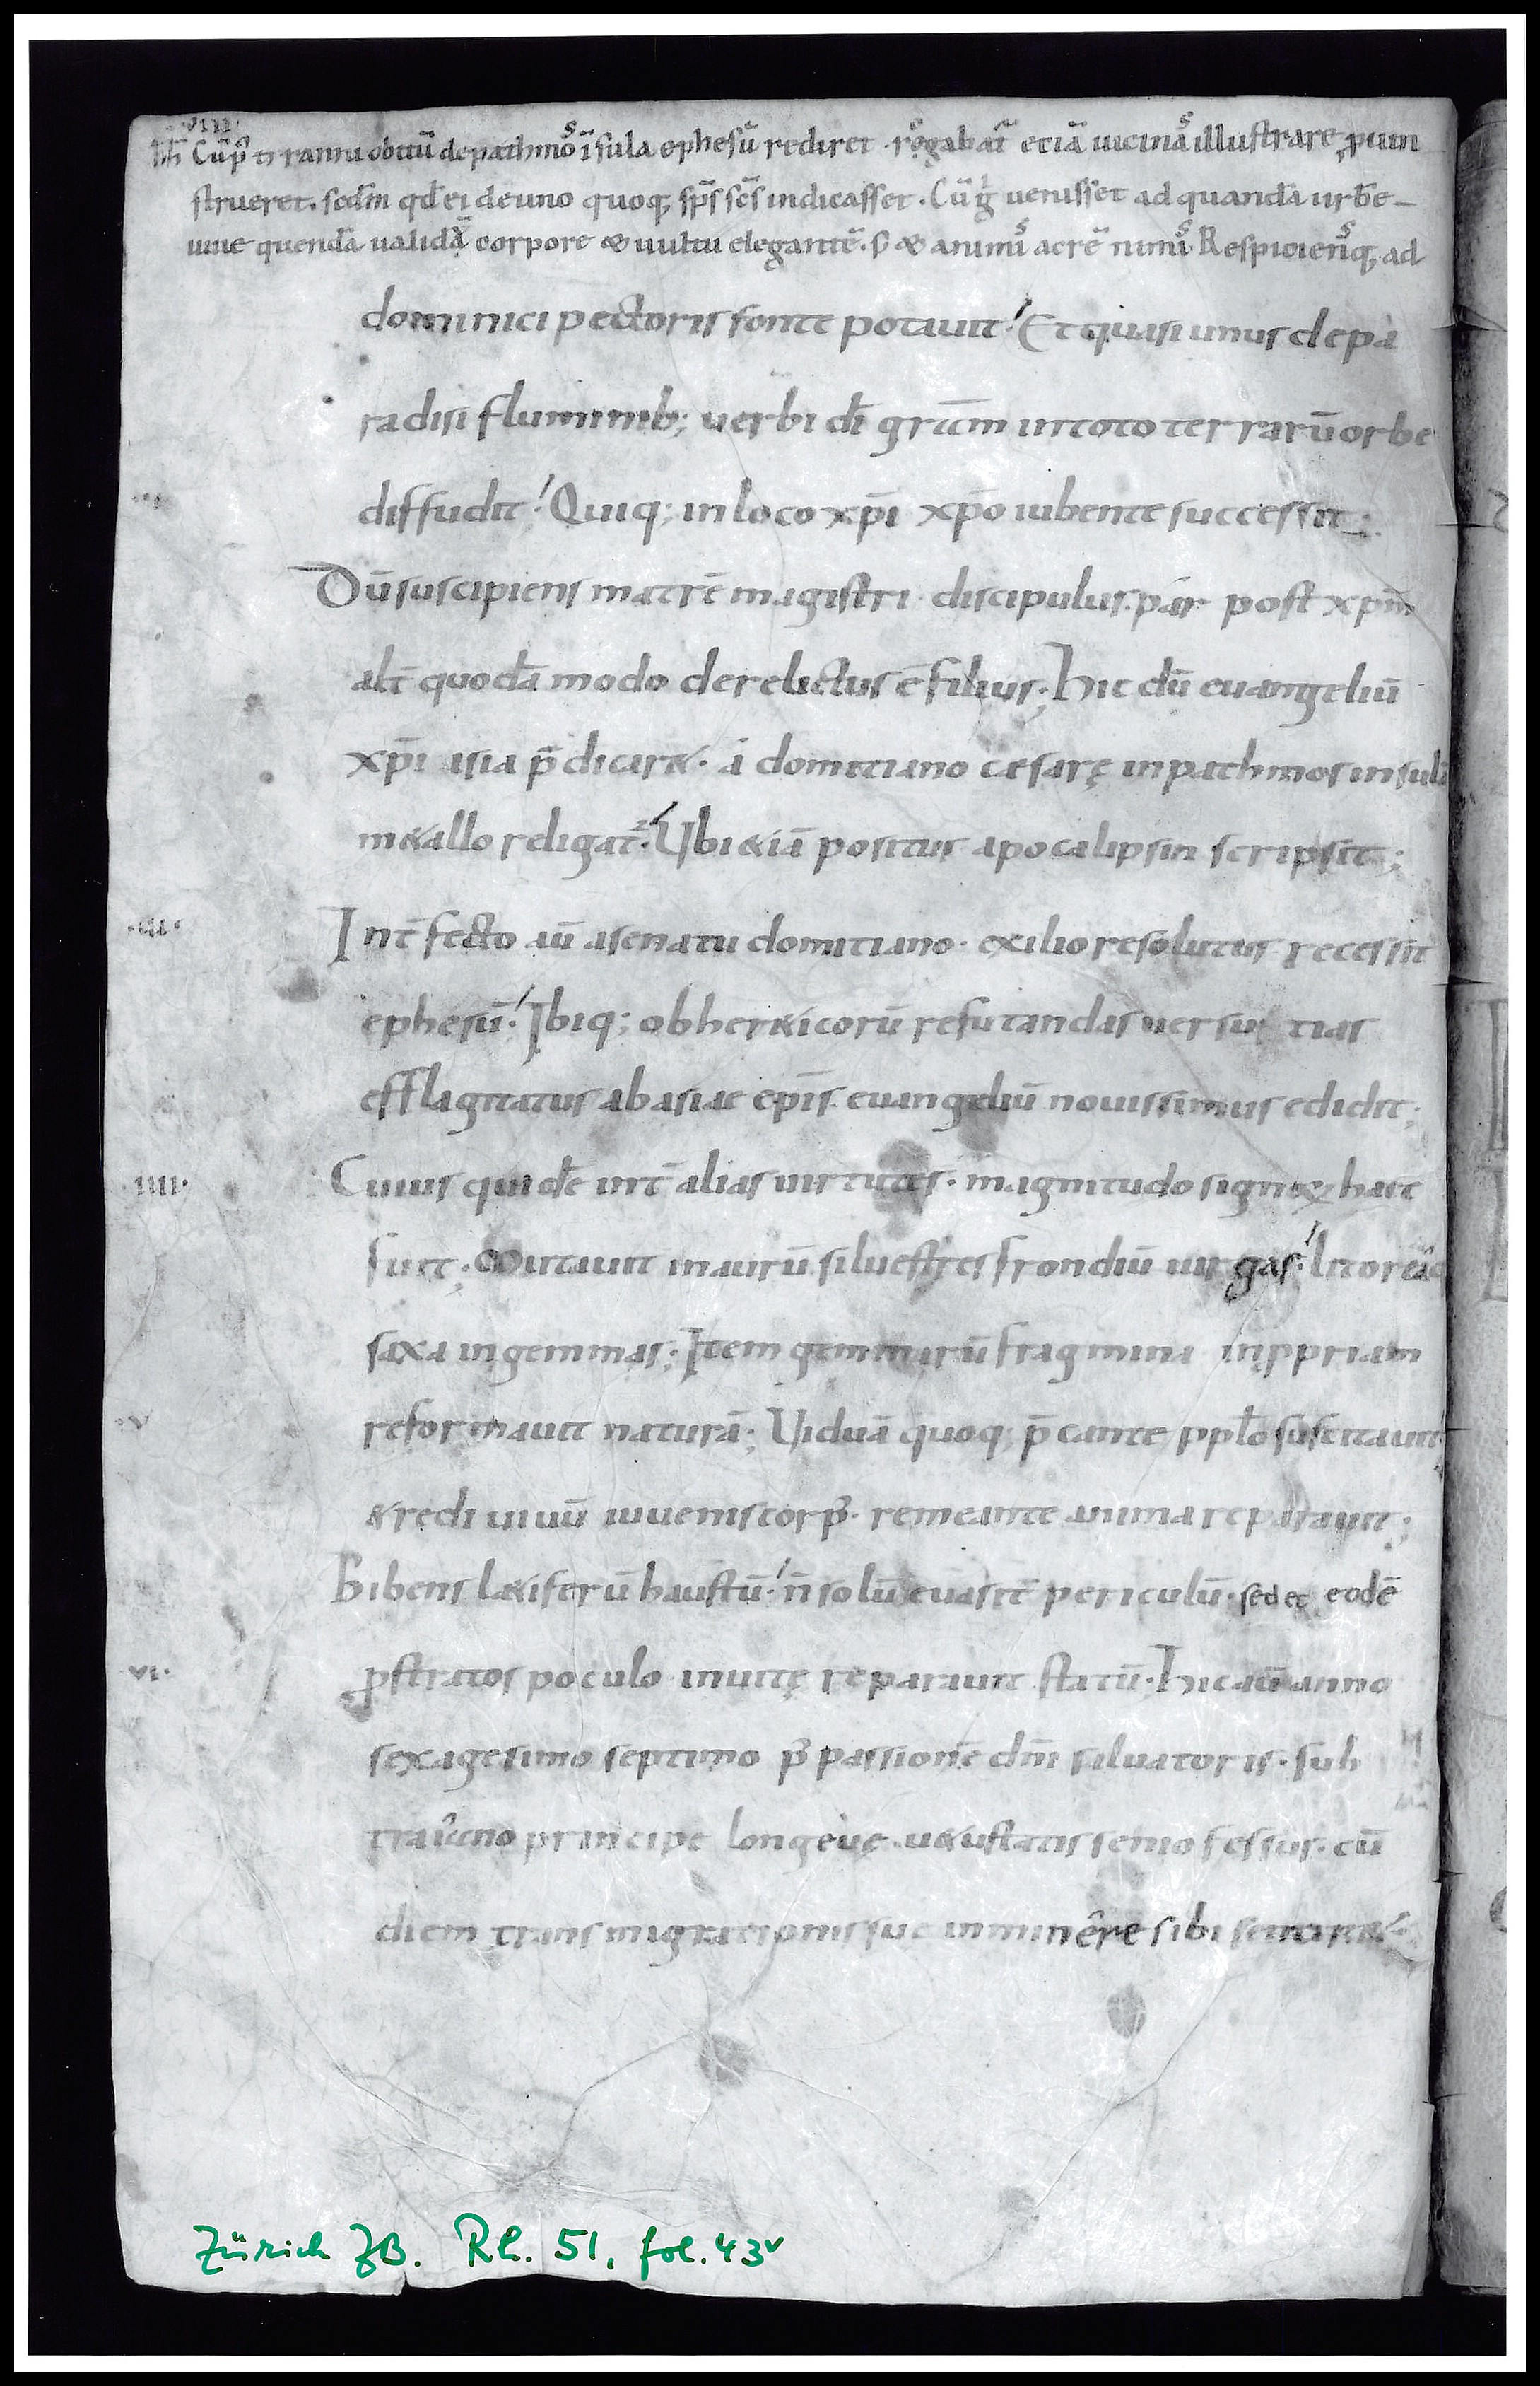 ·VIII·
Cū p᷒ tirannu obitū de pathmo᷒ īsula ephesū rediret · rogabat᷑ etiā uicina᷒ illustrare ꝓuin
strueret. secdm̄ qđ ei de uno quoq; sp̄s sc̄s indicasset. Cū g̊ uenisset ad quandā urbē
uue quendā validā corpore & uultu elegantē. S & animū᷒ acrē nimi᷒. Respicien᷒q; ad
dominici pectoris fonte potauit·́ Et quasi unus de pa
radisi fluminib; uerbi dī gr̄am in toto terrarū orbe
diffudit·́ Quiq; in loco xp̄i xp̄o iubente successit;
Dū suscipiens matrē magistri discipulus. pár post xp̄m
alt̄ quodā modo derelictus ē filius; hic dū euangeliū
xp̄i asia p̄dicar&· á domitiano cesarę in pathmos insulā
m&allo religat᷑·́ Vbi &iā positus apocalipsin scripsit;
·III· Int̄fecto aū a senatu domitiano· exilio resolutus recessit
ephesū·́ Ibiq; ob her&icorū refutandas uersu tias
efflagitatus ab asiae ep̄is. euangeliū nouissimus edidit;
·IIII· Cuius quidē int̄ alias uirtutes· magnitudo signoꝝ haec
fuit; Mutauit in aurū siluestres frondiū uirgas·́ litoreaq
saxa in gemmas; Item gemmarū fragmina in ꝓpriam
·V reformauit naturā; Viduā quoq; p̄cante ppl̄o suscitauit
& rediuiuū iuuenis corp᷒· remeante anima reparauit;
Bibens l&iferū haustū·́ n̄ solū euasit periculū· sed et eodē
·VI· ꝓstratos poculo in uitę reparauit statū· hic aū anno
sexagesimo septimo p᷒ passionē dn̄i saluatoris· sub
traiano principe longeuę u&ustatis senio fessus· cū
diem transmigrationis sue imminêre sibi sentir&·́
Zürich ZB. Rh. 51, fol. 43v